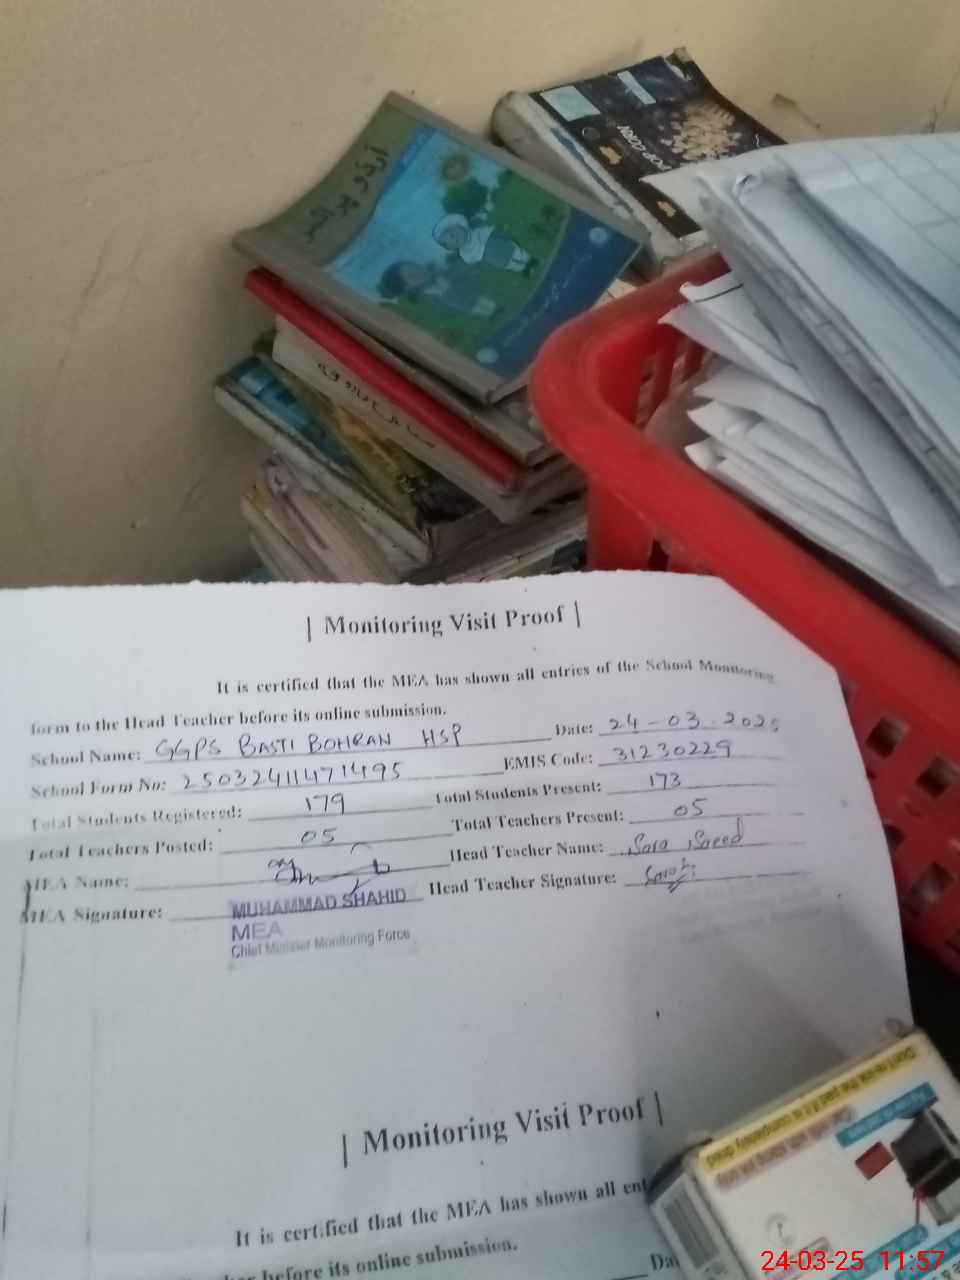 اردو پرائمر
POP CORN
| Monitoring Visit Proof |
It is certified that the MEA has shown all entries of the School Monitoring
form to the Head Teacher before its online submission.
School Name: GGPS BASTI BOHRAN HSP Date: 24-03-2025
School Form No: 25032411471495 EMIS Code: 31230229
Total Students Registered: 179 Total Students Present: 173
Total Teachers Posted: 05 Total Teachers Present: 05
MEA Name: Head Teacher Name: Sara Saeed
MEA Signature: Head Teacher Signature:
MUHAMMAD SHAHID
MEA
Chief Minister Monitoring Force
| Monitoring Visit Proof |
It is certified that the MEA has shown all ent
her before its online submission.
Dat
Don't re-ink the pad if it is completely dried
24-03-25 11:57